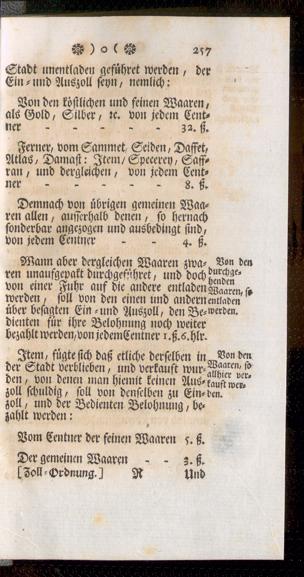 ❊ ) o ( ❊ 257
Stadt unentladen geführet werden, der
Ein- und Auszoll seyn, nemlich:
Von den köstlichen und feinen Waaren,
als Gold, Silber, ꝛc. von jedem Cent-
ner - - - - - 32. ß.
Ferner, vom Sammet, Seiden, Daffet,
Atlas, Damast: Item/ Specerey, Saff-
ran, und dergleichen, von jedem Cent-
ner - - - - - 8. ß.
Demnach von übrigen gemeinen Waa-
ren allen, ausserhalb denen, so hernach
sonderbar angezogen und ausbedingt sind,
von jedem Centner - - 4. ß.
Mann aber dergleichen Waaren zwa-
ren unaufgepakt durchgeführet, und doch
von einer Fuhr auf die andere entladen
werden, soll von den einen und andern
über besagten Ein- und Auszoll, den Be-
dienten für ihre Belohnung noch weiter
bezahlt werden, von jedem Centner 1. ß. 6. hlr.
Von den
durchge-
henden
Waaren, so
entladen
werden.
Item, fügte sich daß etliche derselben in
der Stadt verblieben, und verkauft wur-
den, von denen man hiemit keinen Aus-
zoll schuldig, soll von denselben zu Ein-
zoll, und der Bedienten Belohnung, be-
zahlt werden:
Von den
Waaren, so
allhier ver-
kauft wer-
den.
Vom Centner der feinen Waaren 5. ß.
Der gemeinen Waaren - - 3. ß.
[Zoll-Ordnung.] R Und